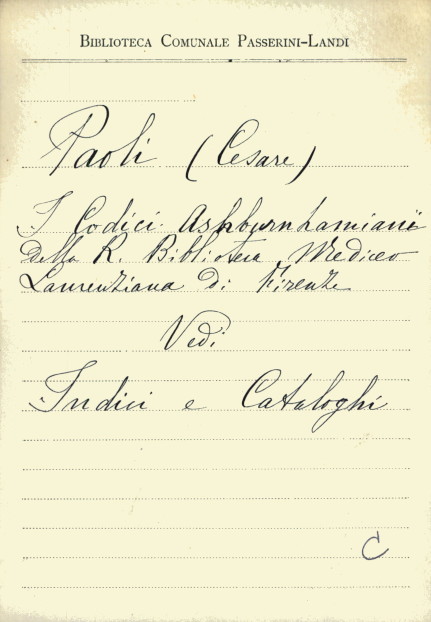 BIBLIOTECA COMUNALE PASSERINI-LANDI
Paoli (Cesare)
I Codici Ashburnhamiani
della R. Biblioteca Mediceo
Laurenziana di Firenze
Vedi
Indici e Cataloghi
C